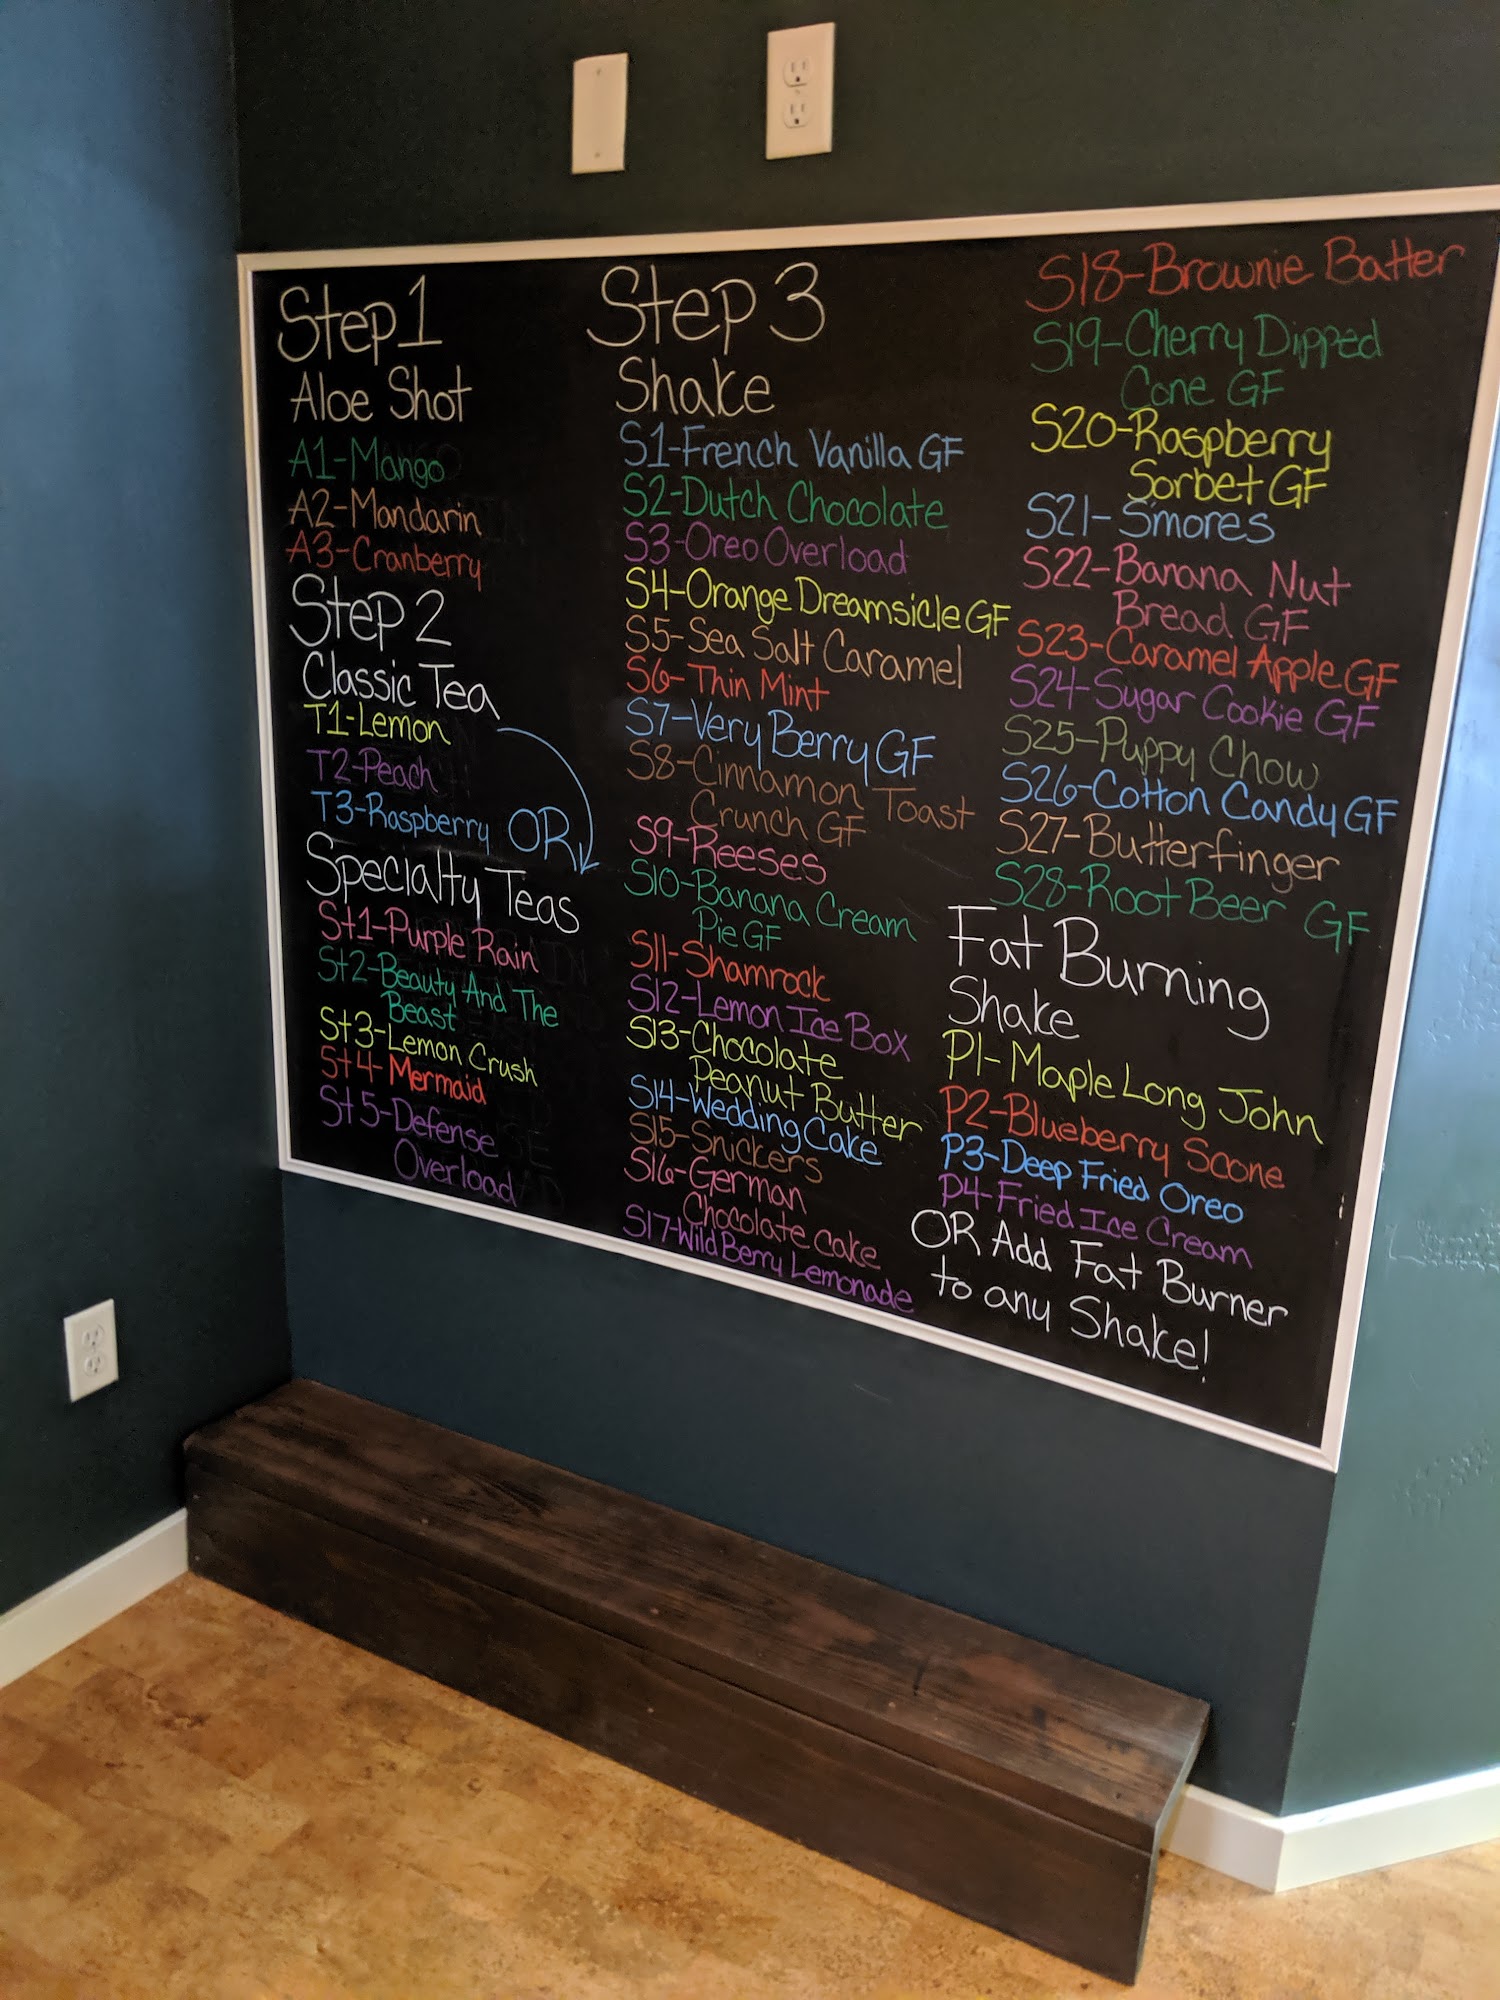 Step 1
Aloe Shot
A1-Mango
A2-Mandarin
A3-Cranberry
Step 2
Classic Tea
T1-Lemon
T2-Peach
T3-Raspberry OR
Specialty Teas
St1-Purple Rain
St2-Beauty And The
Beast
St3-Lemon Crush
St4-Mermaid
St5-Defense
Overload
Step 3
Shake
S1-French Vanilla GF
S2-Dutch Chocolate
S3-Oreo Overload
S4-Orange Dreamsicle GF
S5-Sea Salt Caramel
S6-Thin Mint
S7-Very Berry GF
S8-Cinnamon Toast
Crunch GF
S9-Reeses
S10-Banana Cream
Pie GF
S11-Shamrock
S12-Lemon Ice Box
S13-Chocolate
Peanut Butter
S14-Wedding Cake
S15-Snickers
S16-German
Chocolate cake
S17-Wild Berry Lemonade
S18-Brownie Batter
S19-Cherry Dipped
Cone GF
S20-Raspberry
Sorbet GF
S21-S'mores
S22-Banana Nut
Bread GF
S23-Caramel Apple GF
S24-Sugar Cookie GF
S25-Puppy Chow
S26-Cotton Candy GF
S27-Butterfinger
S28-Root Beer GF
Fat Burning
Shake
P1-Maple Long John
P2-Blueberry Scone
P3-Deep Fried Oreo
P4-Fried Ice Cream
OR Add Fat Burner
to any Shake!